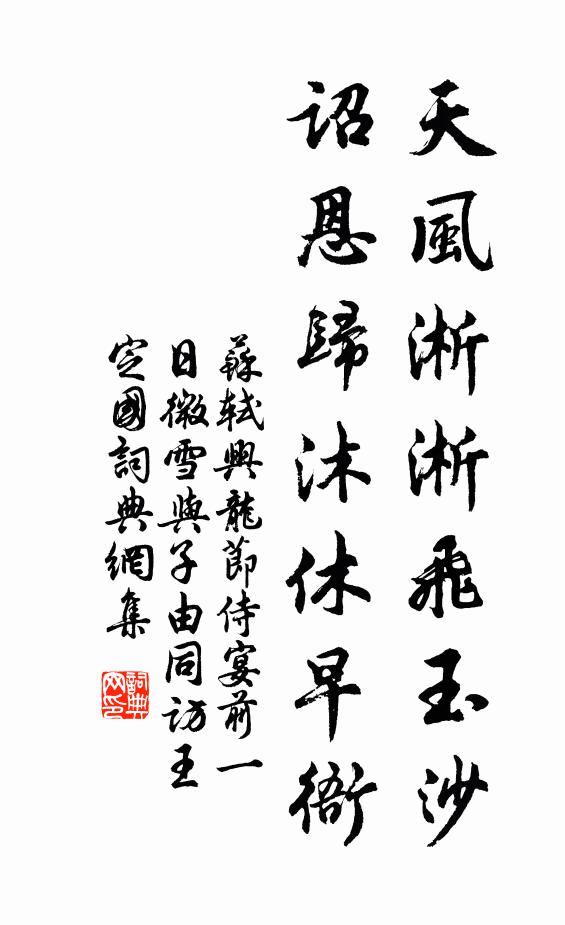 天風淅淅飛玉沙
詔恩歸沐休早衙
蘇軾興龍節侍宴前一
日微雪與子由同訪王
定國詞典網集
詞典
网印